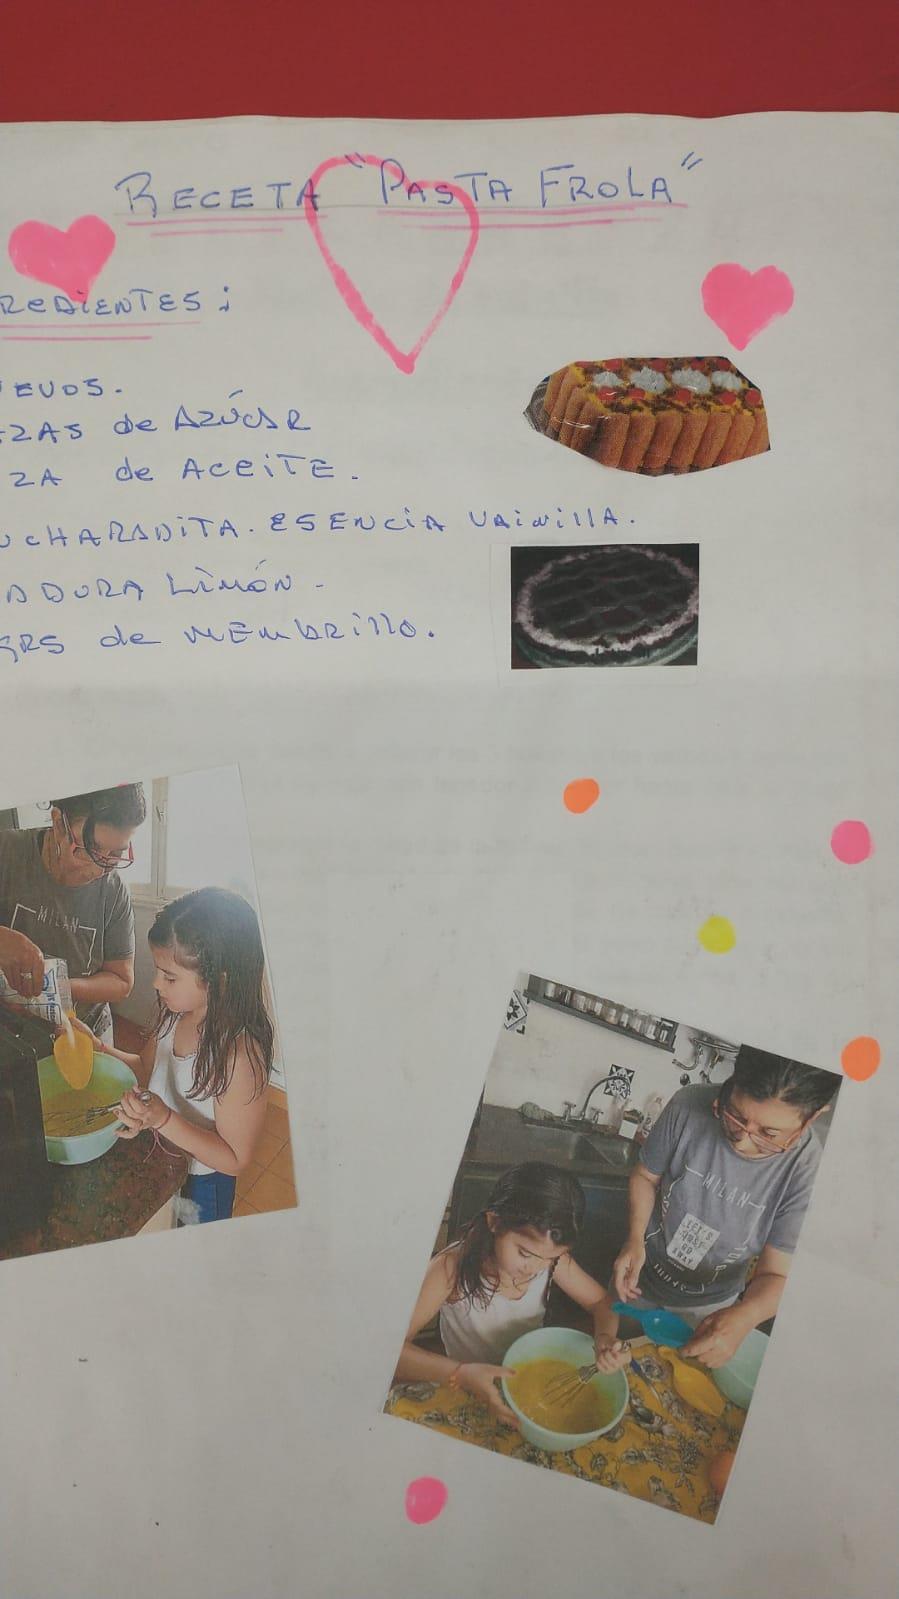 RECETA "PASTA FROLA"
REDIENTES:
EVOS.
ZAS de AZÚCAR
ZA de ACEITE.
UCHARADITA. ESENCIA VAINILLA.
ADURA LIMÓN -
GRS de MEMBRILLO.
MILAN
MILAN
LET'S
JUST
GO
AWAY